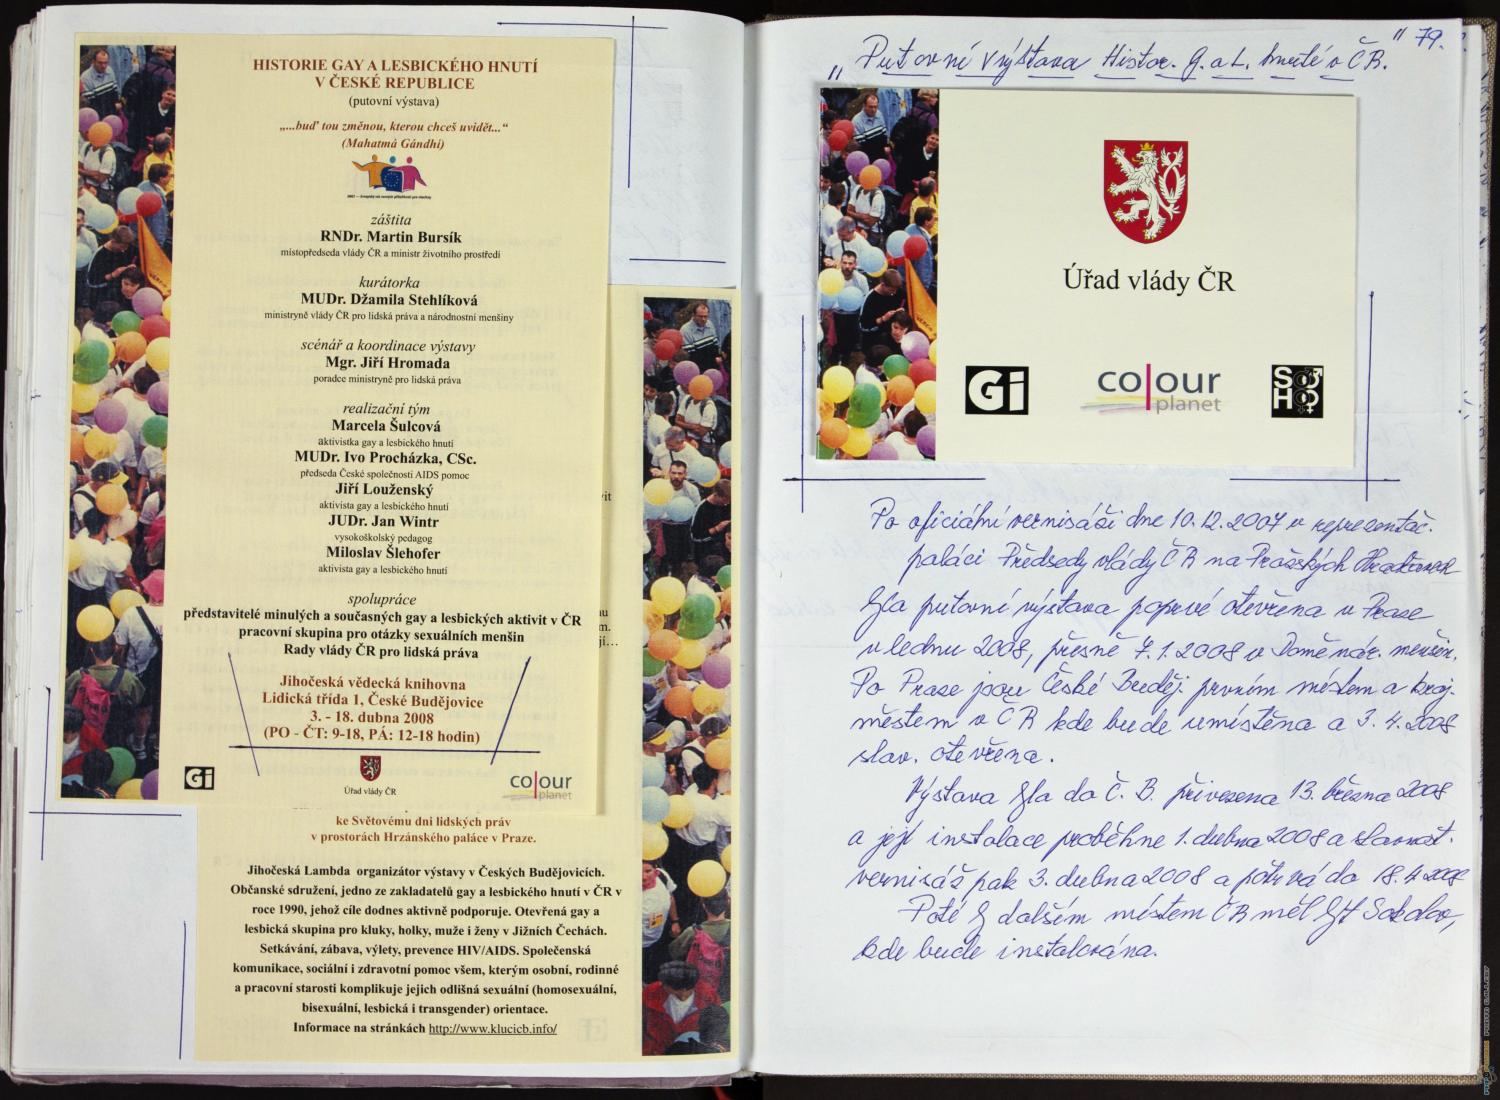 HISTORIE GAY A LESBICKÉHO HNUTÍ
V ČESKÉ REPUBLICE
(putovní výstava)
„...buď tou změnou, kterou chceš uvidět...“
(Mahatmá Gándhí)
záštita
RNDr. Martin Bursík
místopředseda vlády ČR a ministr životního prostředí
kurátorka
MUDr. Džamila Stehlíková
ministryně vlády ČR pro lidská práva a národnostní menšiny
scénář a koordinace výstavy
Mgr. Jiří Hromada
poradce ministryně pro lidská práva
realizační tým
Marcela Šulcová
aktivistka gay a lesbického hnutí
MUDr. Ivo Procházka, CSc.
předseda České společnosti AIDS pomoc
Jiří Louženský
aktivista gay a lesbického hnutí
JUDr. Jan Wintr
vysokoškolský pedagog
Miloslav Šlehofer
aktivista gay a lesbického hnutí
spolupráce
představitelé minulých a současných gay a lesbických aktivit v ČR
pracovní skupina pro otázky sexuálních menšin
Rady vlády ČR pro lidská práva
Jihočeská vědecká knihovna
Lidická třída 1, České Budějovice
3. - 18. dubna 2008
(PO - ČT: 9-18, PÁ: 12-18 hodin)
Gi
Úřad vlády ČR
colour
planet
ke Světovému dni lidských práv
v prostorách Hrzánského paláce v Praze.
Jihočeská Lambda organizátor výstavy v Českých Budějovicích.
Občanské sdružení, jedno ze zakladatelů gay a lesbického hnutí v ČR v
roce 1990, jehož cíle dodnes aktivně podporuje. Otevřená gay a
lesbická skupina pro kluky, holky, muže i ženy v Jižních Čechách.
Setkávání, zábava, výlety, prevence HIV/AIDS. Společenská
komunikace, sociální i zdravotní pomoc všem, kterým osobní, rodinné
a pracovní starosti komplikuje jejich odlišná sexuální (homosexuální,
bisexuální, lesbická i transgender) orientace.
Informace na stránkách http://www.klucicb.info/
„Putovní výstava Histor. G. a L. hnutí v ČR.“ 79.
Úřad vlády ČR
Gi
colour
planet
S
H
Po oficiální vernisáži dne 10.12.2007 v reprezentač.
paláci Předsedy vlády ČR na Pražských
putovní výstava poprvé otevřena v Praze
v lednu 2008, přesně 7.1.2008 v Domě nár. menšin.
Po Praze jsou České Buděj. prvním místem a kraj.
městem v ČR kde bude umístěna a 3. 4. 2008
slav. otevřena.
Výstava do Č. B. přivezena 13. března 2008
a její instalace proběhne 1. dubna 2008 a slavnost.
vernisáž pak 3. dubna 2008 a potrvá do 18.4.2008
Poté dalším místem ČR měl být Sokolov,
kde bude instalována.